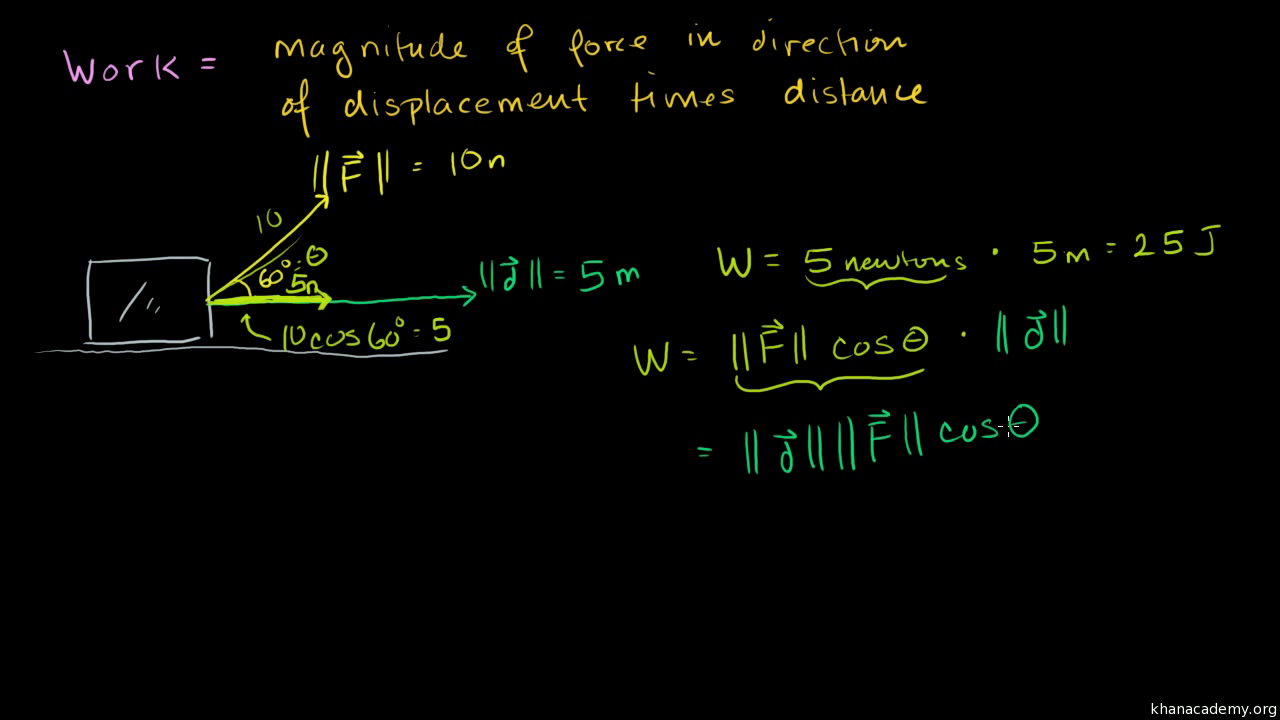 Work = magnitude of force in direction
of displacement times distance
||F⃗|| = 10n
10
60° = θ
5n
||d⃗|| = 5 m
10cos60° = 5
W = 5 newtons · 5m = 25 J
W = ||F⃗|| cosθ · ||d⃗||
= ||d⃗|| ||F⃗|| cosθ
khanacademy.org